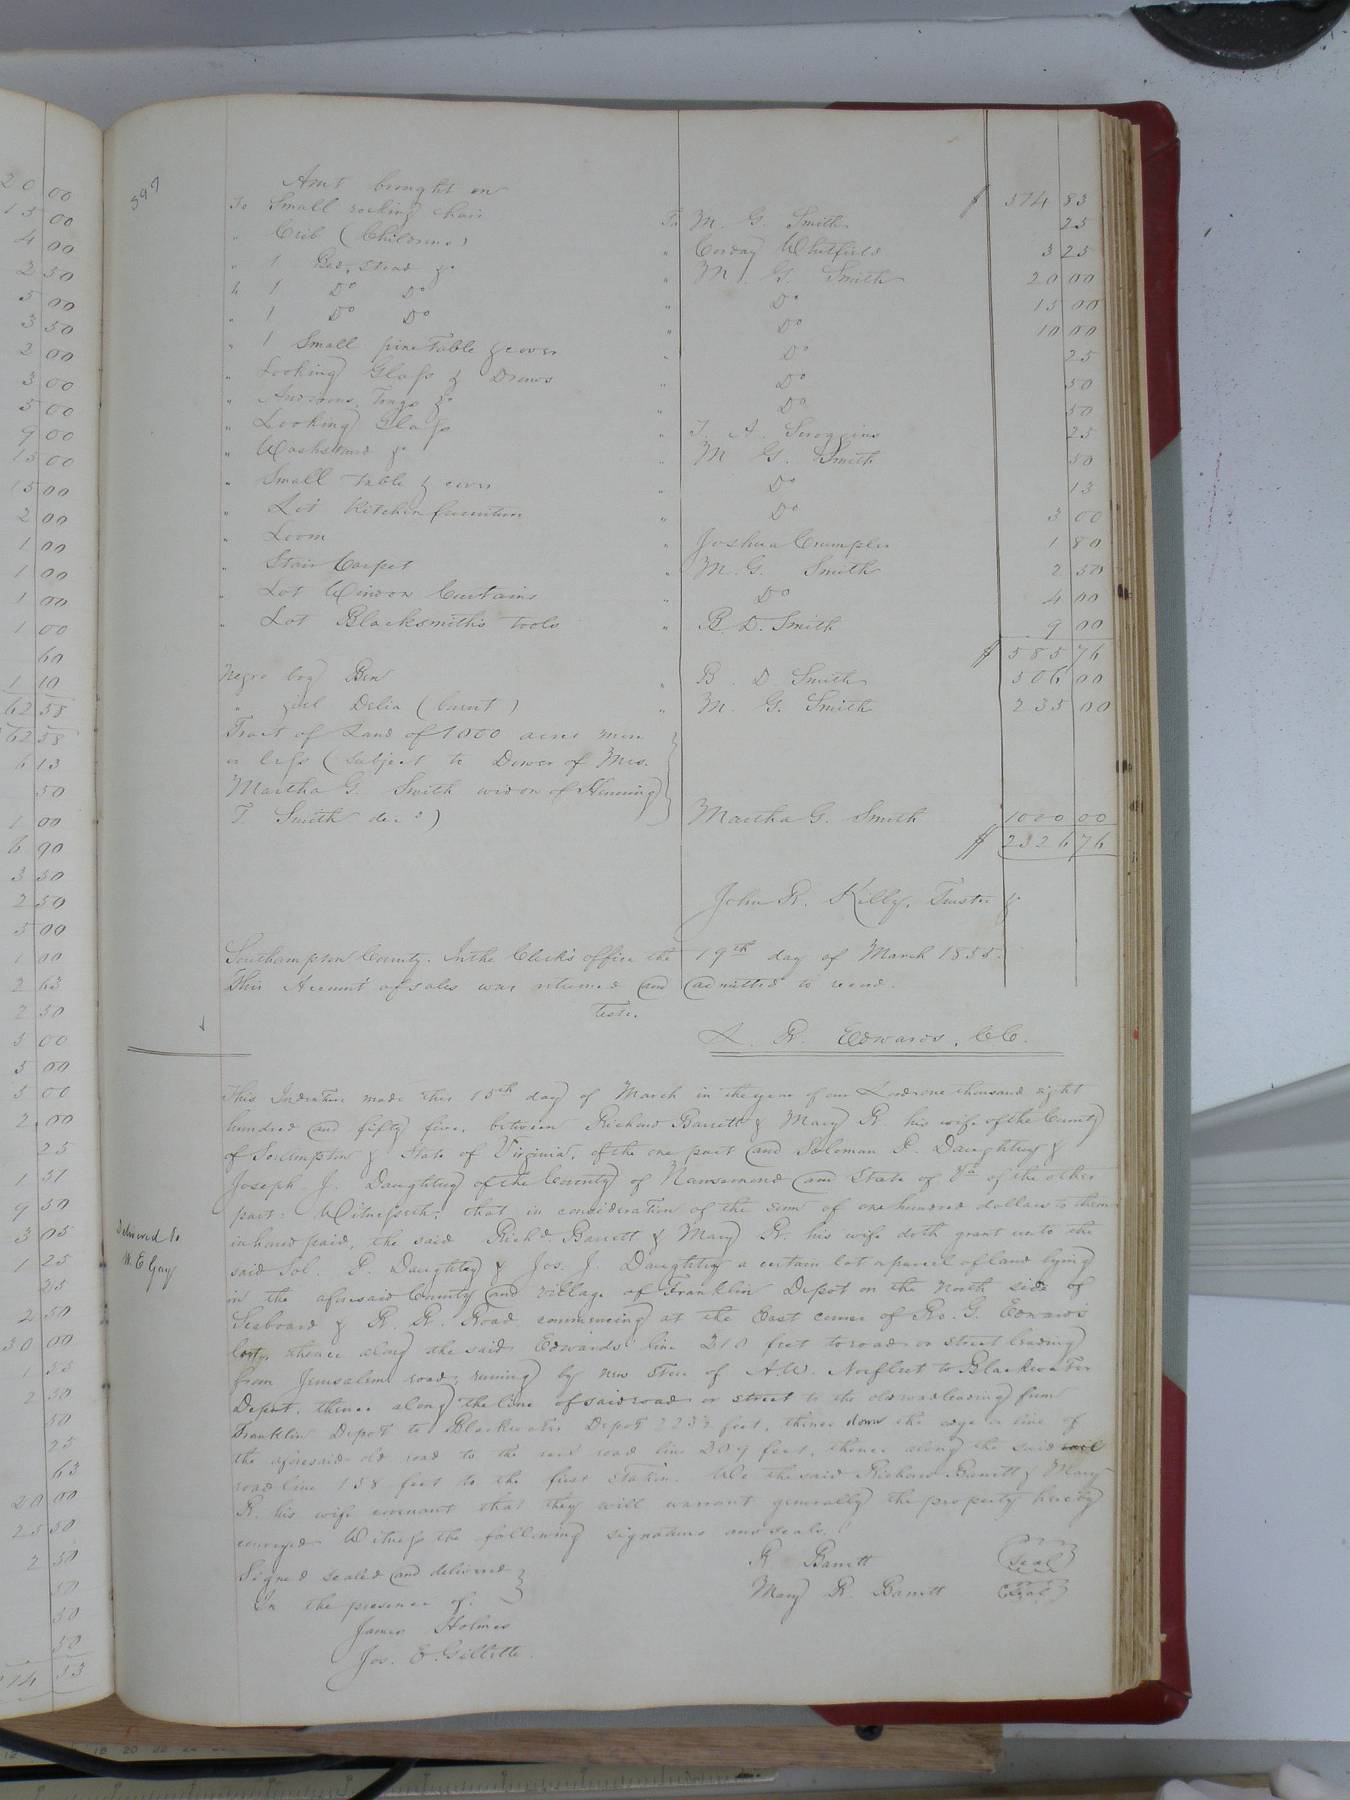 597
Amt brought on $ 514 83
To Small rocking chair To M. G. Smith 25
" Crib (Childrens) " Corday Whitfield 3 25
" 1 Bed, Stead &c " M. G. Smith 20 00
" 1 Do Do " Do 15 00
" 1 Do Do " Do 10 00
" 1 Small pine Table & cover " Do 25
" Looking Glass & Draws " Do 50
" Andirons, Tongs &c " Do 50
" Looking Glass " T. A. Scroggins 25
" Washstand &c " M. G. Smith 50
" Small Table & cover " Do 13
" Lot Kitchen furniture " Do 3 00
" Loom " Joshua Crumpler 1 80
" Stair Carpet " M. G. Smith 2 50
" Lot Window Curtains " Do 4 00
" Lot Blacksmith's tools " B. D. Smith 9 00
$ 585 76
Negro boy Ben " B. D. Smith 506 00
" girl Delia (burnt) " M. G. Smith 235 00
Tract of Land of 1000 acres more
or less (subject to Dower of Mrs.
Martha G. Smith widow of Henning
T. Smith dec:d) Martha G. Smith 1000 00
$ 2326 76
John R. Killy, Trustee &
Southampton County. In the Clerk's office the 19th day of March 1855.
This Account of sales was returned and admitted to record.
Teste.
L. R. Edwards, CC.
This Indenture made this 15th day of March in the year of our Lord one thousand eight
hundred and fifty five, between Richard Barrett & Mary R. his wife of the County
of Southampton & State of Virginia, of the one part and Soloman P. Daughtrey &
Joseph J. Daughtrey of the County of Nansemond and State of Va of the other
part: Witnesseth, that in consideration of the sum of one hundred dollars to them
in hand paid, the said Richd. Barrett & Mary R. his wife doth grant unto the
said Sol. P. Daughtrey & Jos. J. Daughtrey a certain lot or parcel of land lying
in the aforesaid County and village of Franklin Depot on the North side of
Seaboard & R. R. Road commencing at the East corner of Ro. G. Edwards
lot, thence along the said Edwards line 210 feet to road or street leading
from Jerusalem road, running by new store of A. W. Norfleet to Blackwater
Depot, thence along the line of said road or street to the old road leading from
Franklin Depot to Blackwater Depot 223½ feet, thence down the edge or line of
the aforesaid old road to the rail road line 209 feet, thence along the said rail
road line 158 feet to the first station. We the said Richard Barrett & Mary
R. his wife covenant that they will warrant generally the property hereby
conveyed. Witness the following signatures and seals.
Signed sealed and delivered R Barrett (seal)
In the presence of: Mary R. Barrett (seal)
James Holmes
Jos. E. Gillette
Delivered to
W. E Gay
20 00
15 00
4 00
2 50
5 00
3 50
2 00
3 00
5 00
9 00
15 00
15 00
2 00
1 00
1 00
1 00
1 00
60
1 10
62 58
62 58
6 13
50
1 00
6 90
3 50
2 50
5 00
1 00
2 63
2 50
5 00
5 00
5 00
2.00
25
1 51
9 50
3 05
1 25
25
2 50
30 00
1 53
2 50
50
25
63
20 00
25 50
2 50
50
50
50